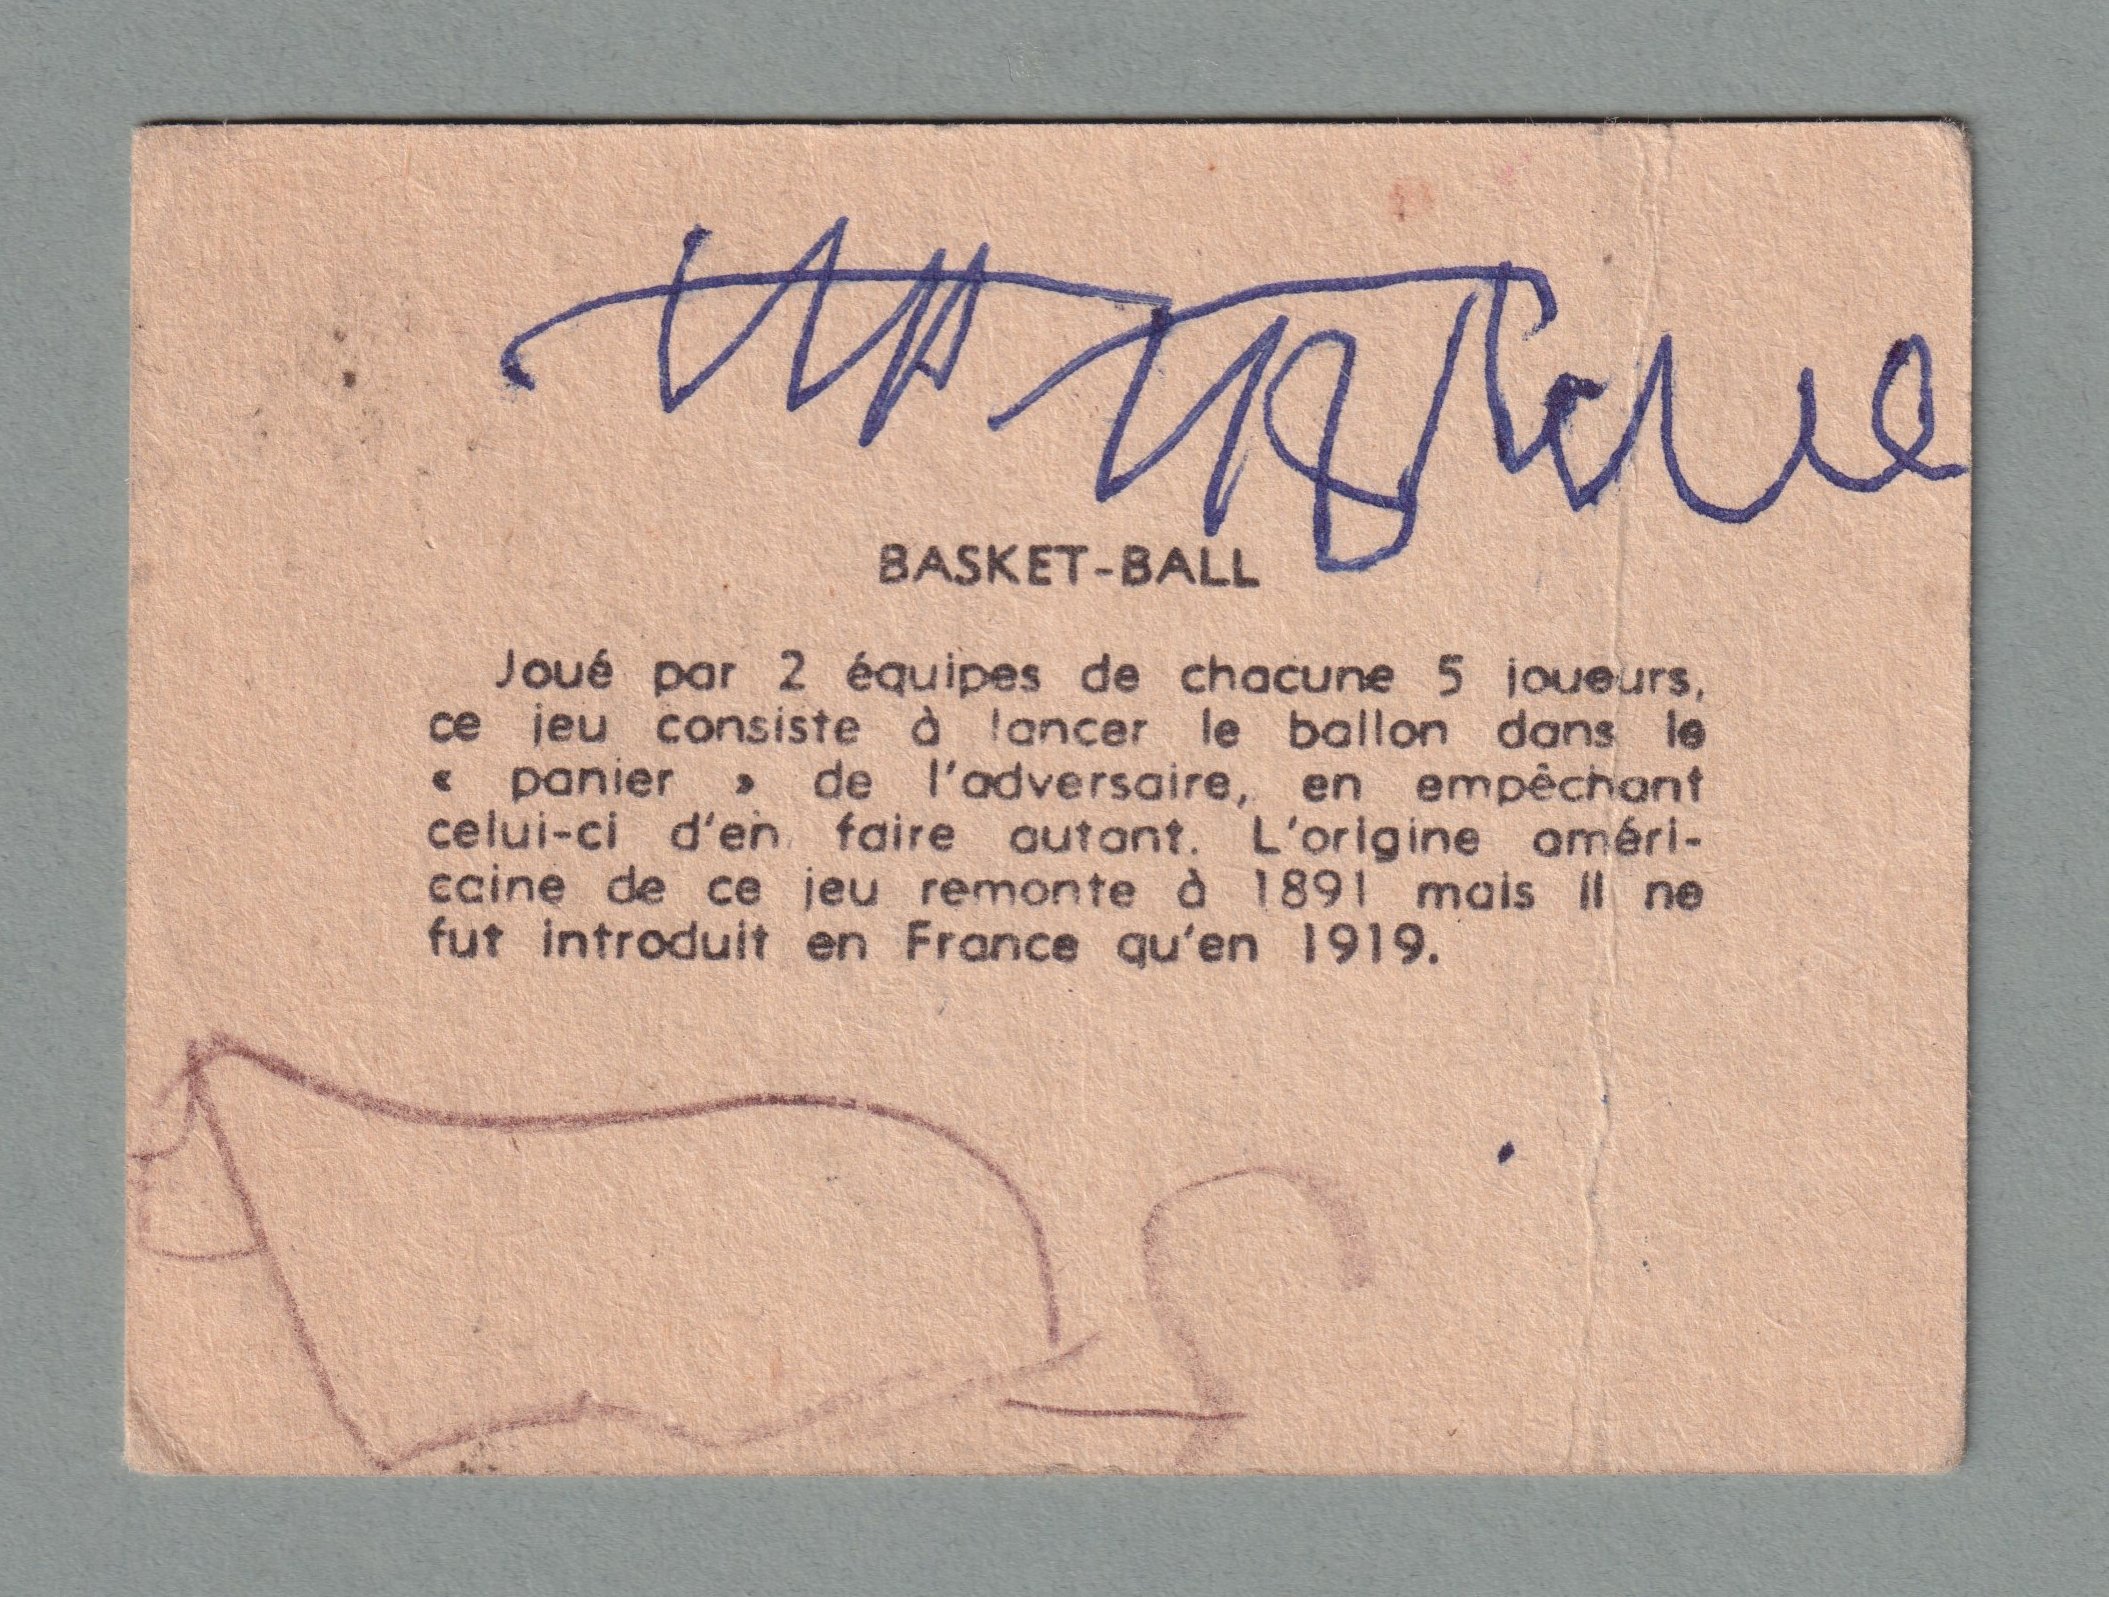 BASKET-BALL
Joué par 2 équipes de chacune 5 joueurs,
ce jeu consiste à lancer le ballon dans le
« panier » de l'adversaire, en empêchant
celui-ci d'en faire autant. L'origine améri-
caine de ce jeu remonte à 1891 mais il ne
fut introduit en France qu'en 1919.